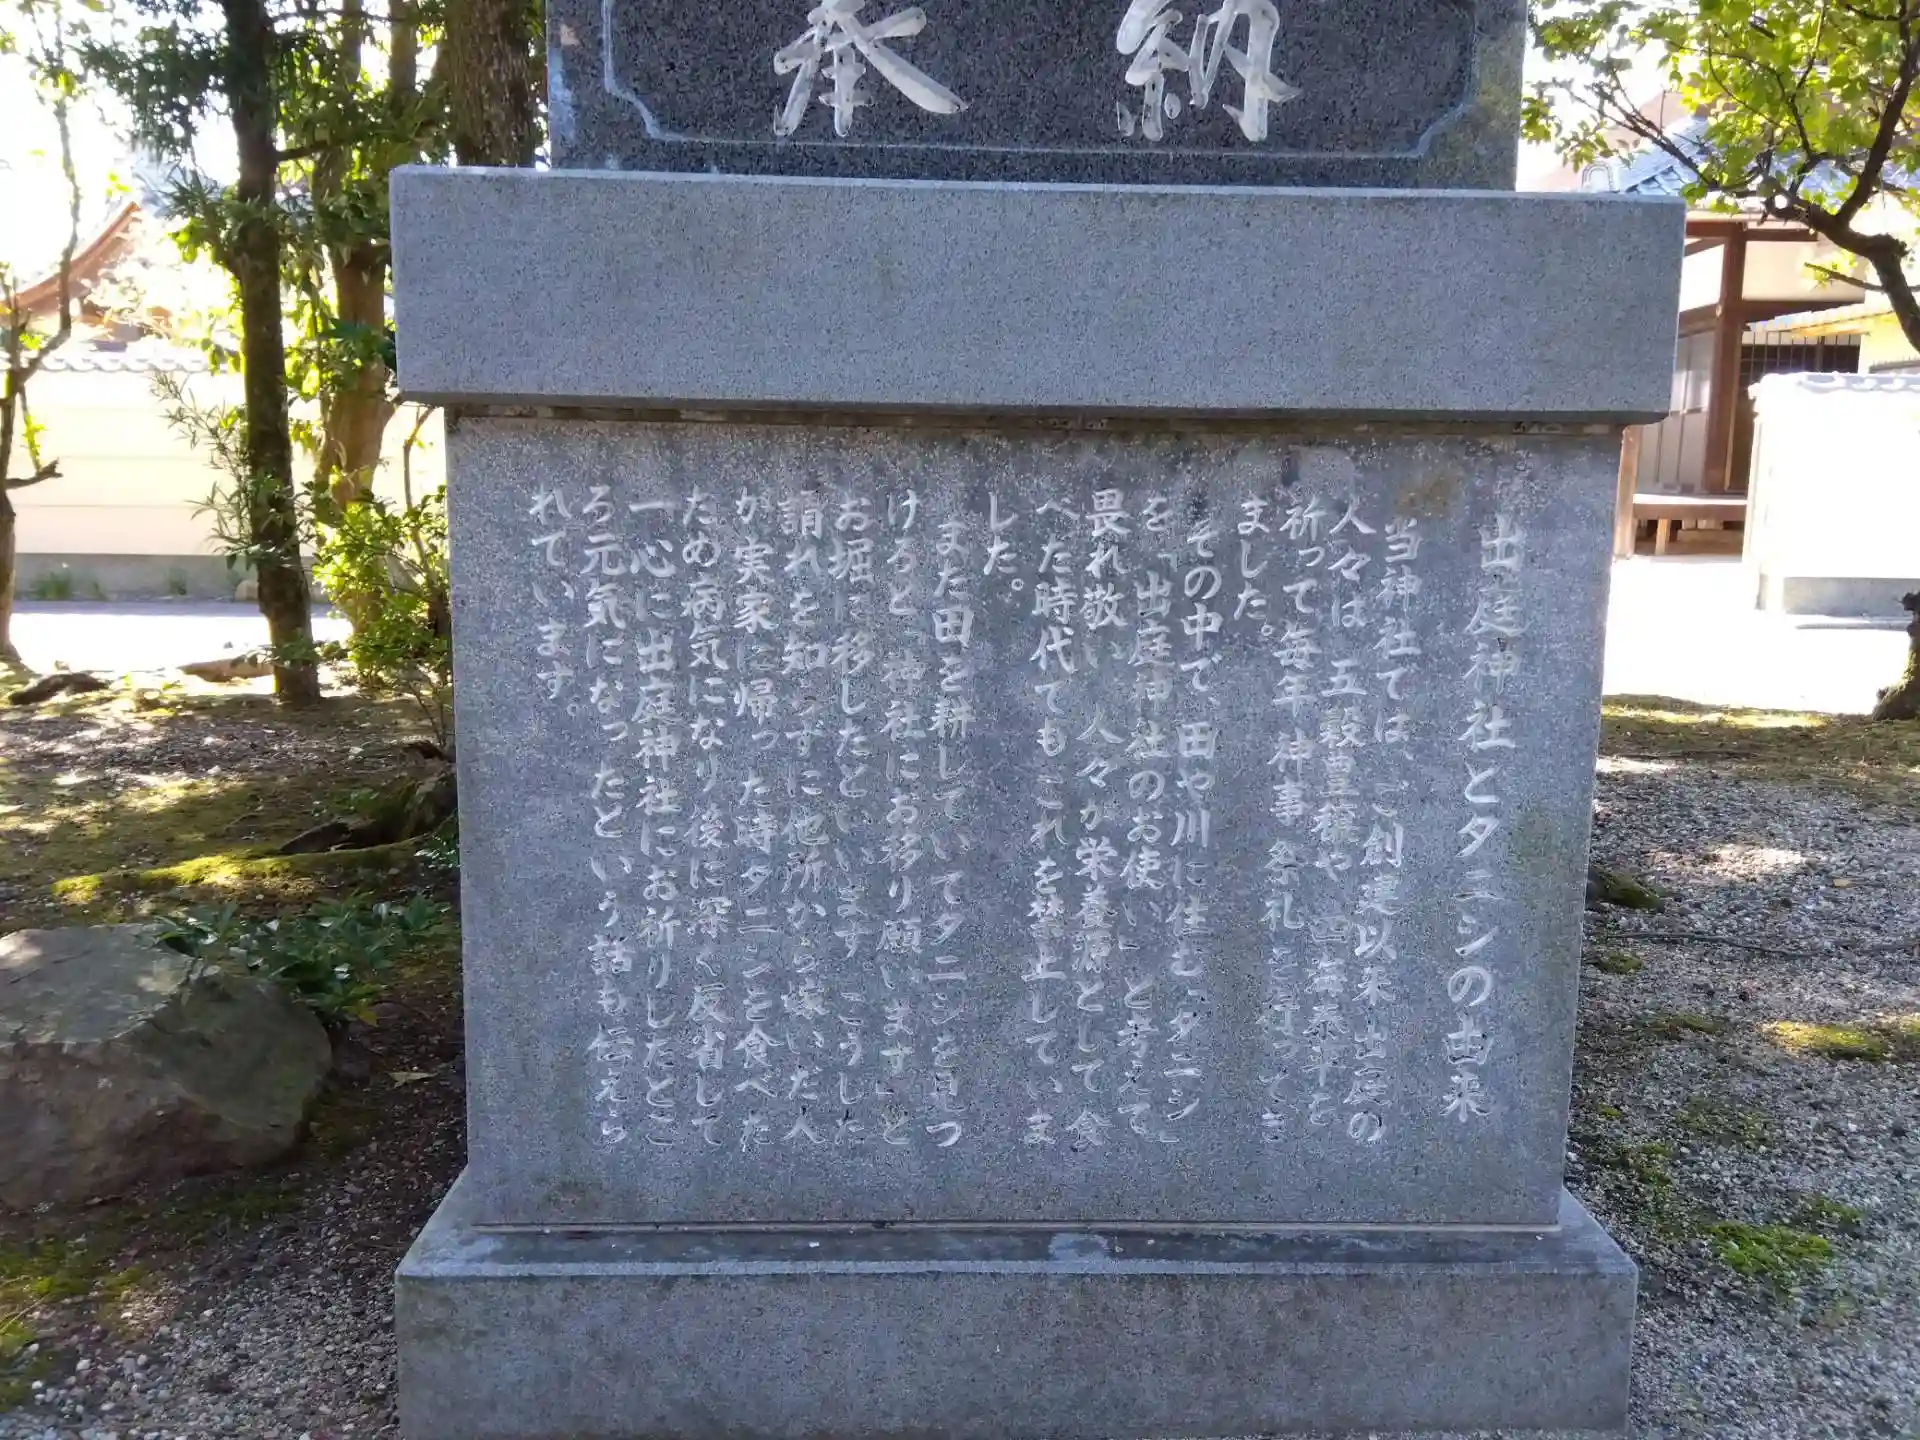 奉納
出庭神社とタニシの由来
当神社では、ご創建以来出庭の
人々は 五穀豊穣や、国海泰平を
祈って毎年神事 祭礼を行ってき
ました。
その中で、田や川に住む「タニシ」
を「出庭神社のお使い」と考えて
畏れ敬い、人々が栄養源として食
べた時代でもこれを禁止していま
した。
また田を耕していてタニシを見つ
けると「神社にお移り願います」と
お堀に移したといいます。こうした
謂れを知らずに他所から嫁いだ人
が実家に帰った時タニシを食べた
ため病気になり後に深く反省して
一心に出庭神社にお祈りしたとこ
ろ元気になったという話も伝えら
れています。